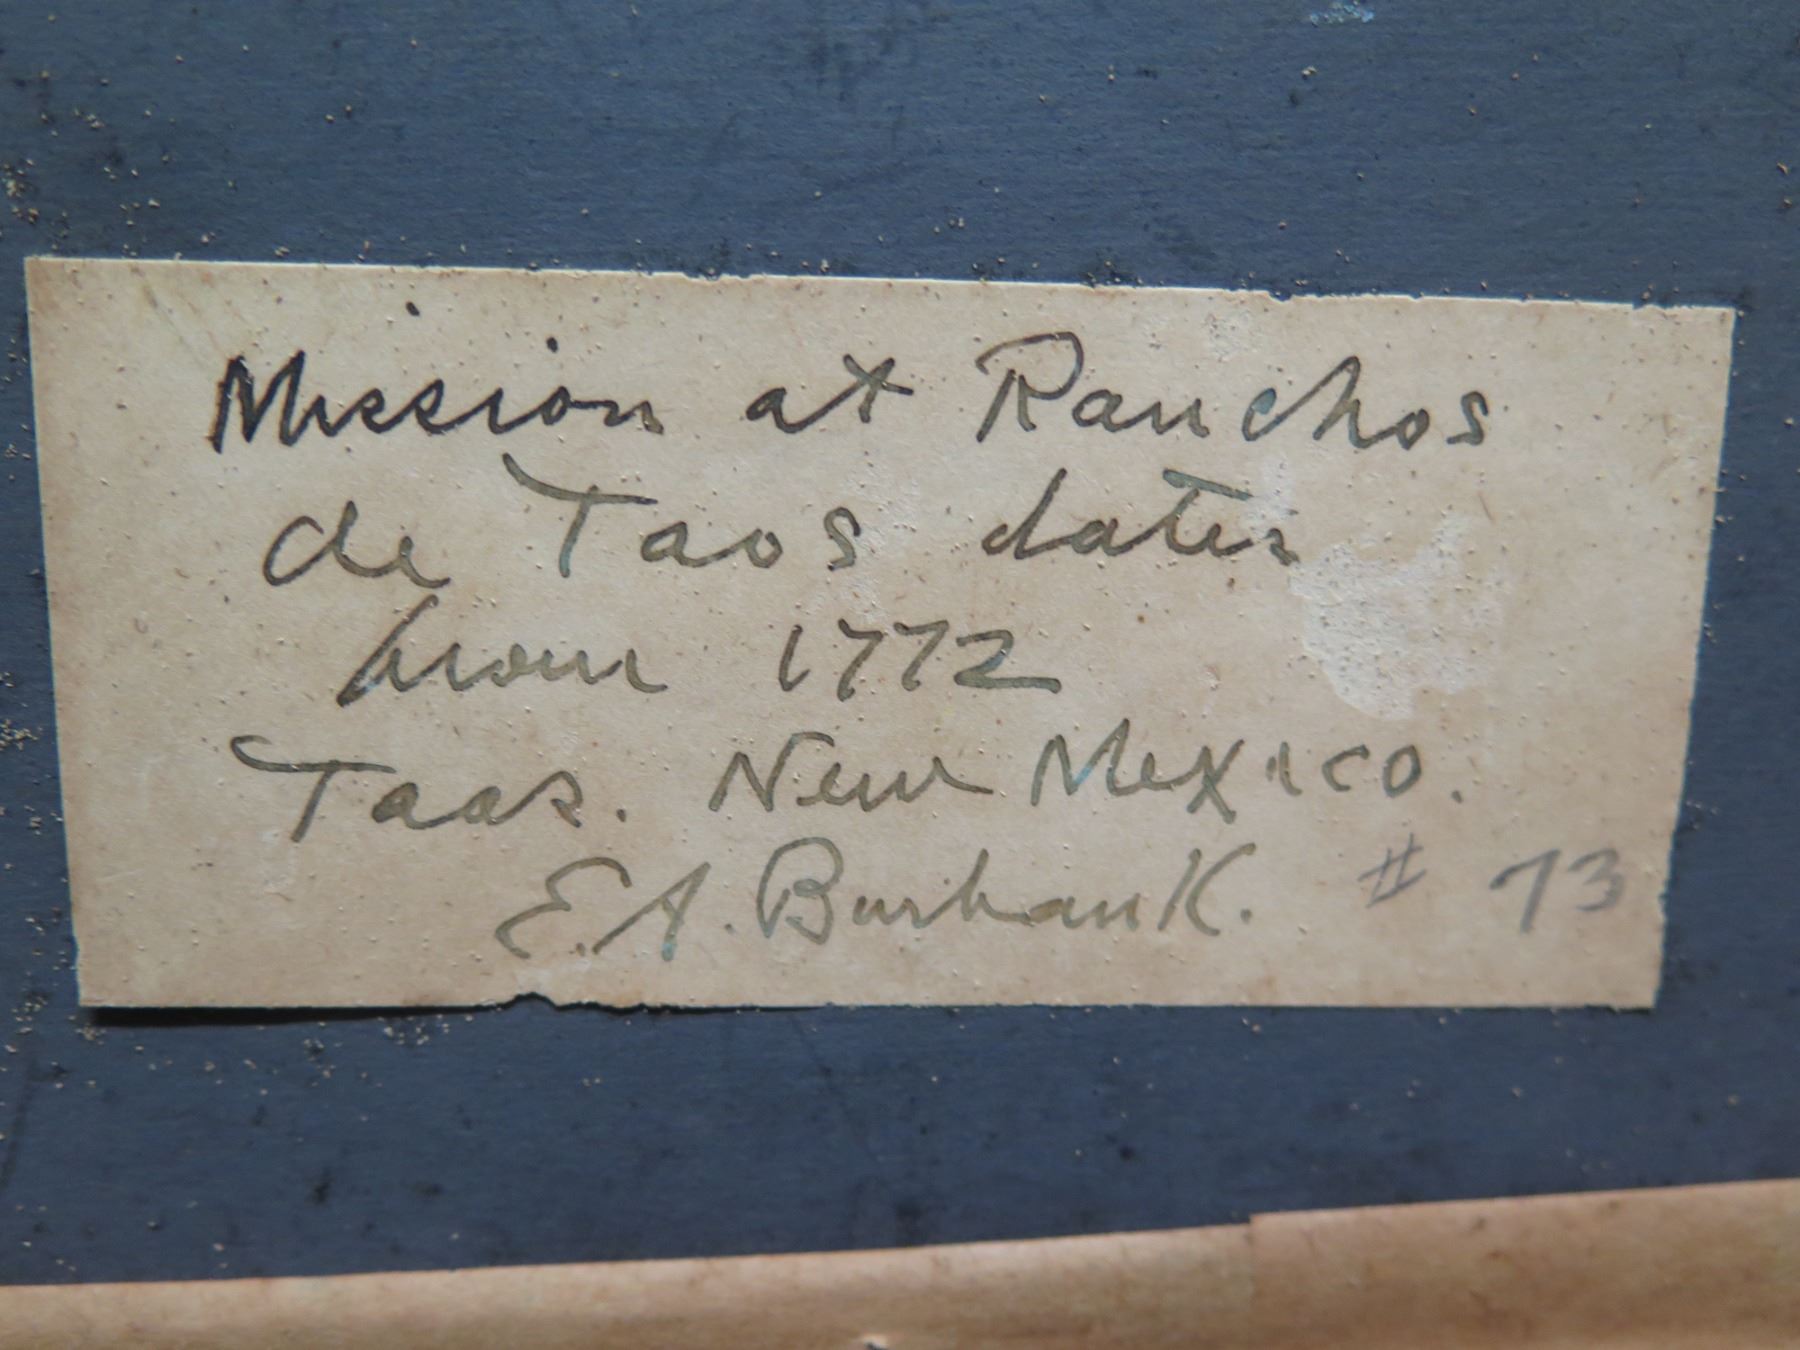 Mission at Ranchos
de Taos dates
from 1772
Taos. New Mexico.
E. A. Burbank. # 73